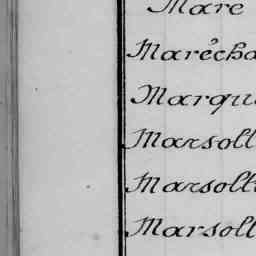 Mare
Marécha
Marqu
Marsoll
Marsolt
Marsolt